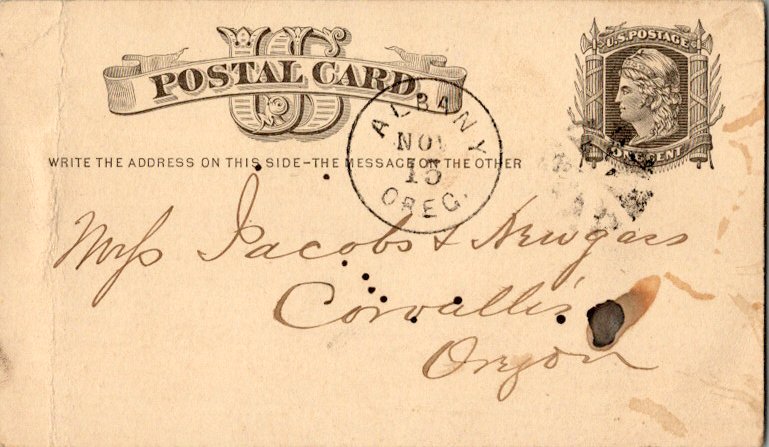 US
POSTAL CARD
U.S. POSTAGE
ONE CENT
ALBANY
NOV
15
OREG.
WRITE THE ADDRESS ON THIS SIDE-THE MESSAGE ON THE OTHER
Jacobs & Newgass
Corvallis
Oregon